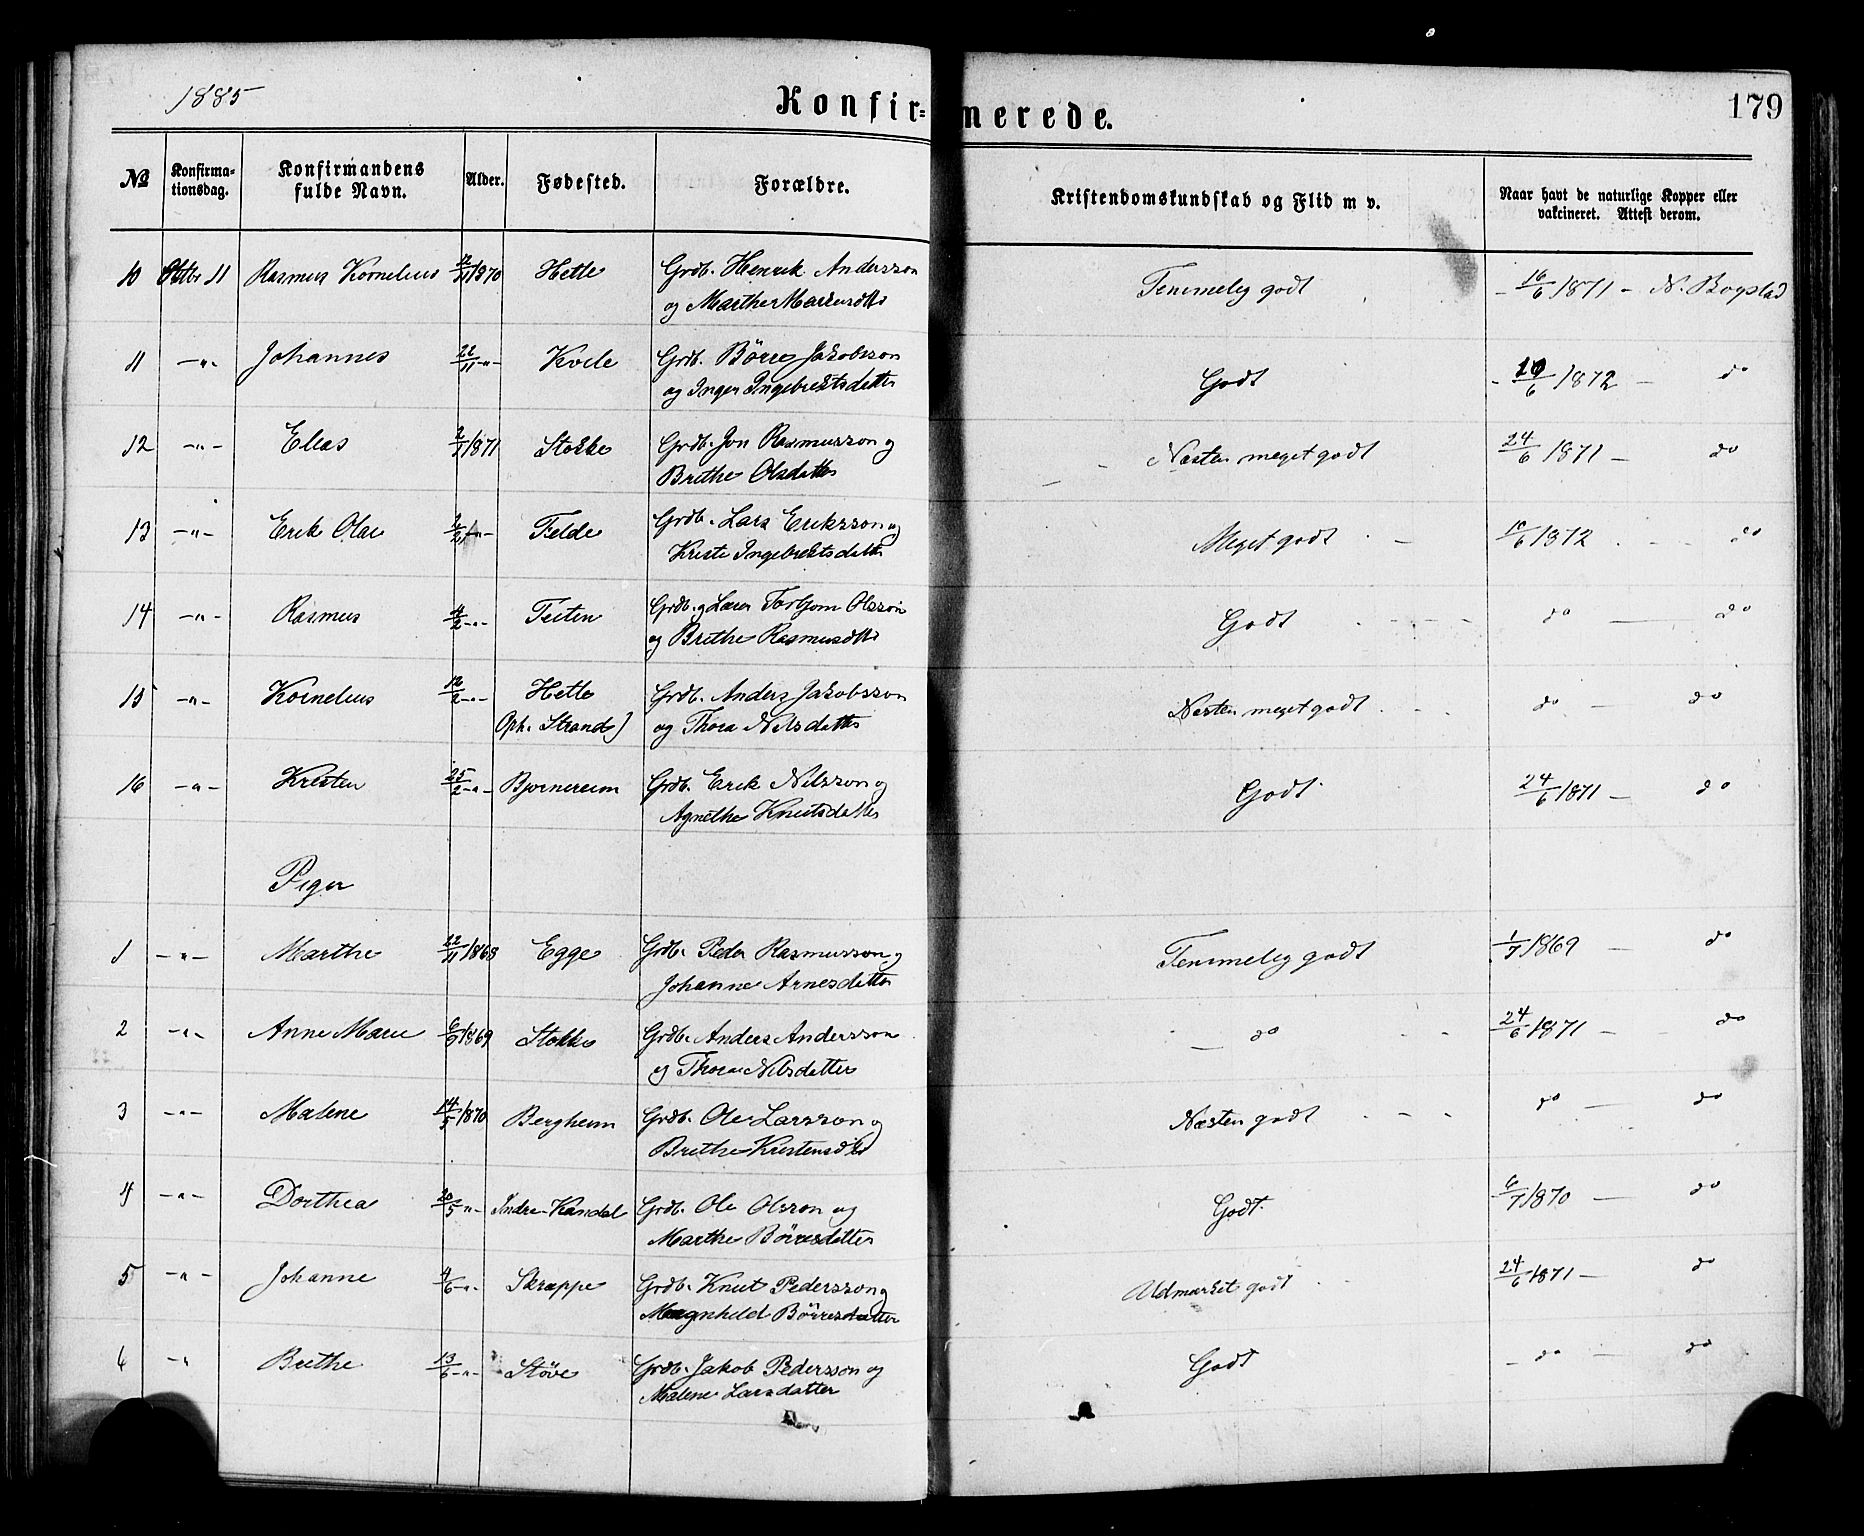 1885
Konfirmerede.
179
№ Konfirmationsdag. Konfirmandens fulde Navn. Alder. Fødested. Forældre. Kristendomskundskab og Flid m v. Naar havt de naturlige Kopper eller vakcineret. Attest derom.
10 Oktbr 11 Rasmus Kornelius /11 1870 Hetle Grdb. Henrik Andersson Temmelig godt - 16/6 1871 - N. Bogstad
og Marthe Markusdtr
11 -"- Johannes 22/11 -"- Kvile Grdb. Börre Jakobsson Godt - 19/6 1872 - do
og Inger Ingebrektsdatter
12 -"- Elias 2/1 1871 Stokke Grdb. Jon Rasmusson og - Næsten meget godt 24/6 1871 - do
Brithe Olsdatter
13 -"- Erik Olai 2/2 -"- Felde Grdb. Lars Eriksson og Meget godt - 18/6 1872 - do
Kristi Ingebrektsdatter
14 -"- Rasmus 4/2 -"- Teiten Grdb. og Lærer Torbjørn Olsson Godt - do - do
og Brithe Rasmusdtr
15 -"- Kornelius 12/2 -"- Hetle Grdb. Anders Jakobsson Næsten meget godt - do - do
Oph. Strand) og Thora Nilsdatter
16 -"- Kristen 25/2 -"- Bjørnereim Grdb. Erik Nilsson og Godt 24/6 1871 - do
Agnethe Knutsdatter
Piger
1 -"- Marthe 22/11 1868 Egge Grdb. Peder Rasmusson og Temmelig godt 1/7 1869 - do
Johanne Arnesdatter
2 -"- Anne Marie 6/9 1869 Stokke Grdb. Anders Andersson - do - 24/6 1871 - do
og Thora Nilsdatter
3 -"- Malene 14/5 1870 Bergheim Grdb. Ole Larsson og Næsten godt - do - do
Brithe Kristensdtr
4 -"- Dorthea 20/5 -"- Indre-Kandal Grdb. Ole Olsson og Godt. 6/7 1870 - do
Marthe Börresdatter
5 -"- Johanne 4/6 -"- Skrappe Grdb. Knut Pedersson og Udmærket godt 24/6 1871 - do
Magnhild Börresdatter
6 -"- Brithe 13/6 -"- Støve Grdb. Jakob Pedersson og Godt - do - do
Malene Larsdatter